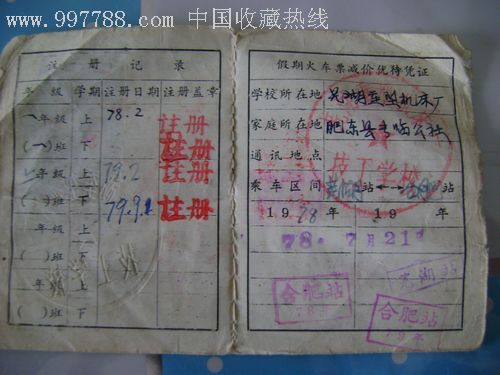 www.997788.com 中国收藏热线
注册记录
年级 学期 注册日期 注册盖章
一年级 上 78.2 注册
(一)班 下 注册
年级 上 79.2 注册
( )班 下 79.9.1 注册
年级 上
( )班 下
年级 上
( )班 下
假期火车票减价优待凭证
学校所在地 芜湖重型机床厂
技工学校
家庭所在地 肥东县 公社
通讯地点
乘车区间 站←→ 站
1978年 19 年
78.7月21
芜湖站
合肥站
78年
合肥站
79年